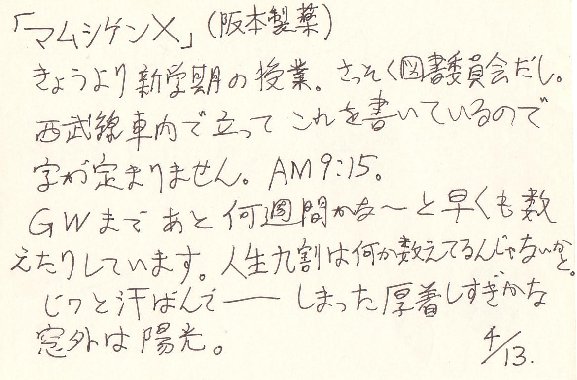 「マムシゲンX」(阪本製薬)
きょうより新学期の授業。さっそく図書委員会だし。
西武線車内で立って これを書いているので
字が定まりません。AM9:15。
GWまであと何週間かな〜と早くも数
えたりしています。人生九割は何か数えてるんじゃないかと。
じわっと汗ばんで── しまった厚着しすぎかな
窓外は陽光。
4/13.